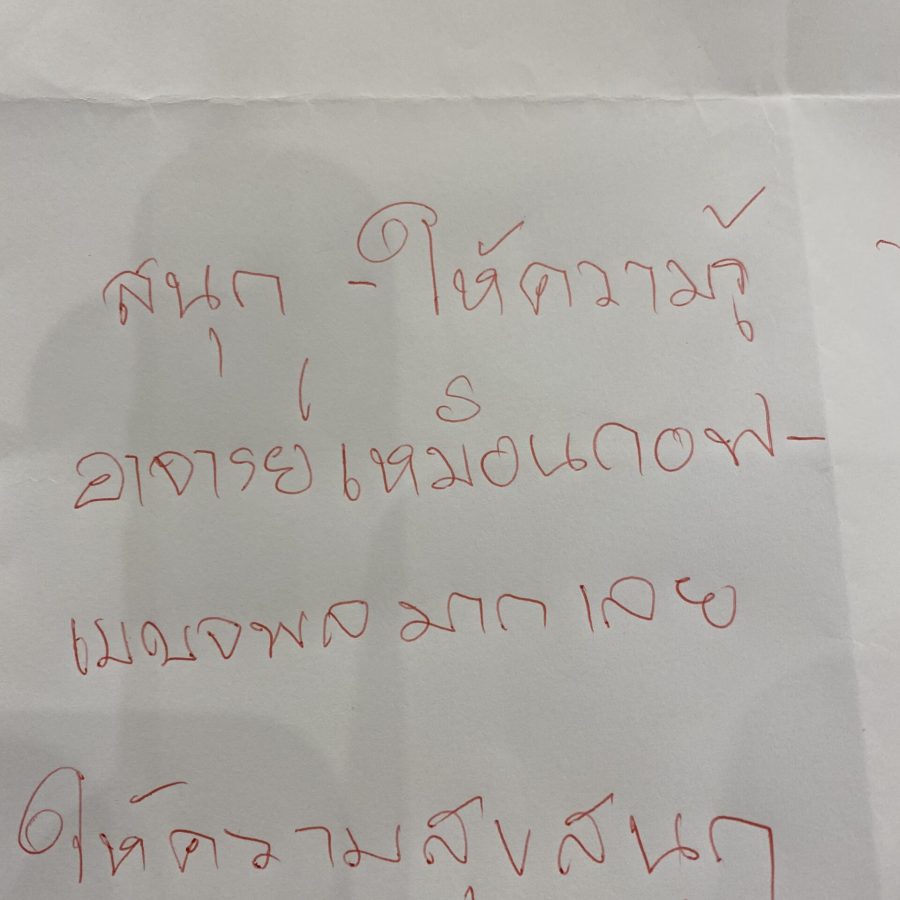 สนุก - ให้ความรู้
อาจารย์เหมือนกอฟ-
เบญจพล มากเลย
ให้ความสุขสนุก